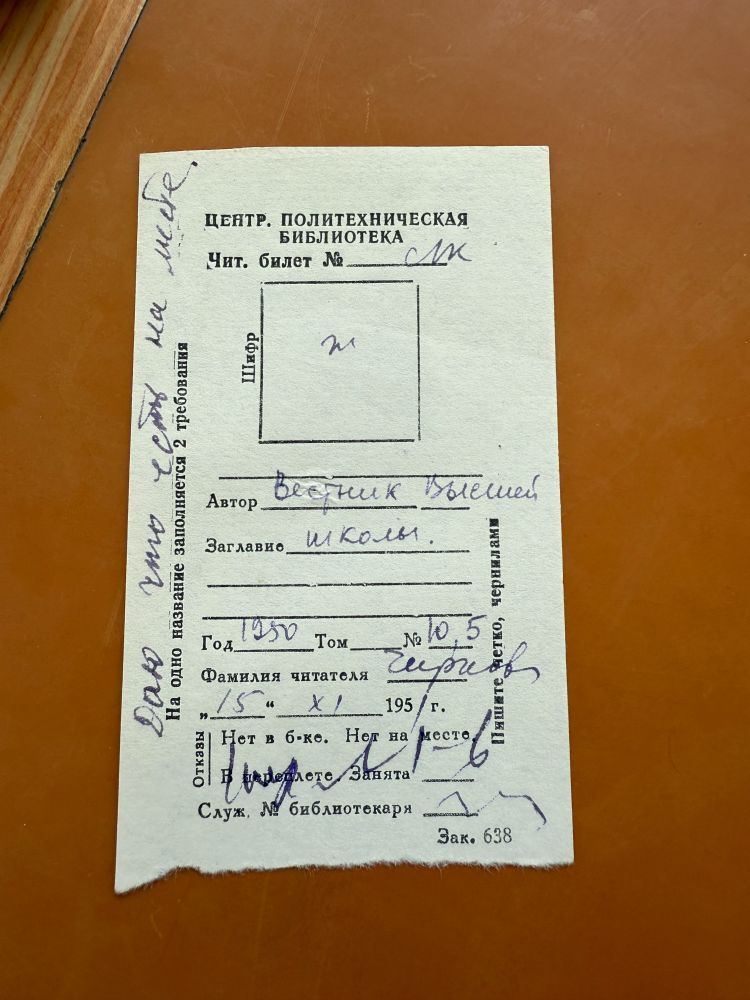 ЦЕНТР. ПОЛИТЕХНИЧЕСКАЯ
БИБЛИОТЕКА
Чит. билет №
Шифр
ж
Автор Вестник Высшей
Заглавие школы.
Год 1950 Том № 10, 5
Фамилия читателя
„15“ XI 1951 г.
Отказы
Нет в б-ке. Нет на месте.
В переплете. Занята
Служ. № библиотекаря
Зак. 638
На одно название заполняется 2 требования
Даю что есть на месте.
Пишите четко, чернилами